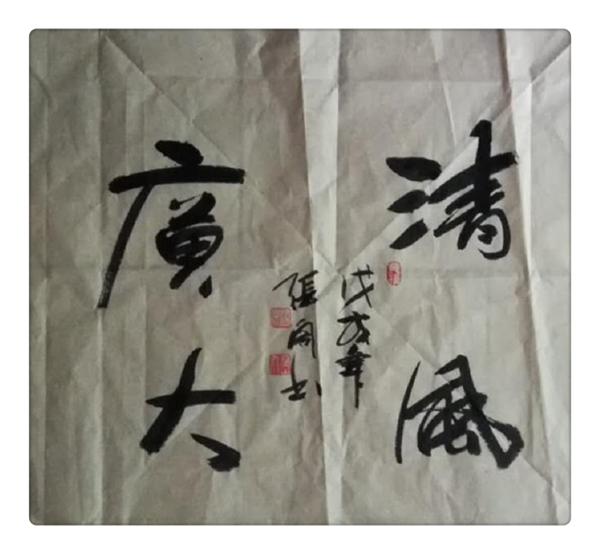 清風
廣大
戊戌年
張书